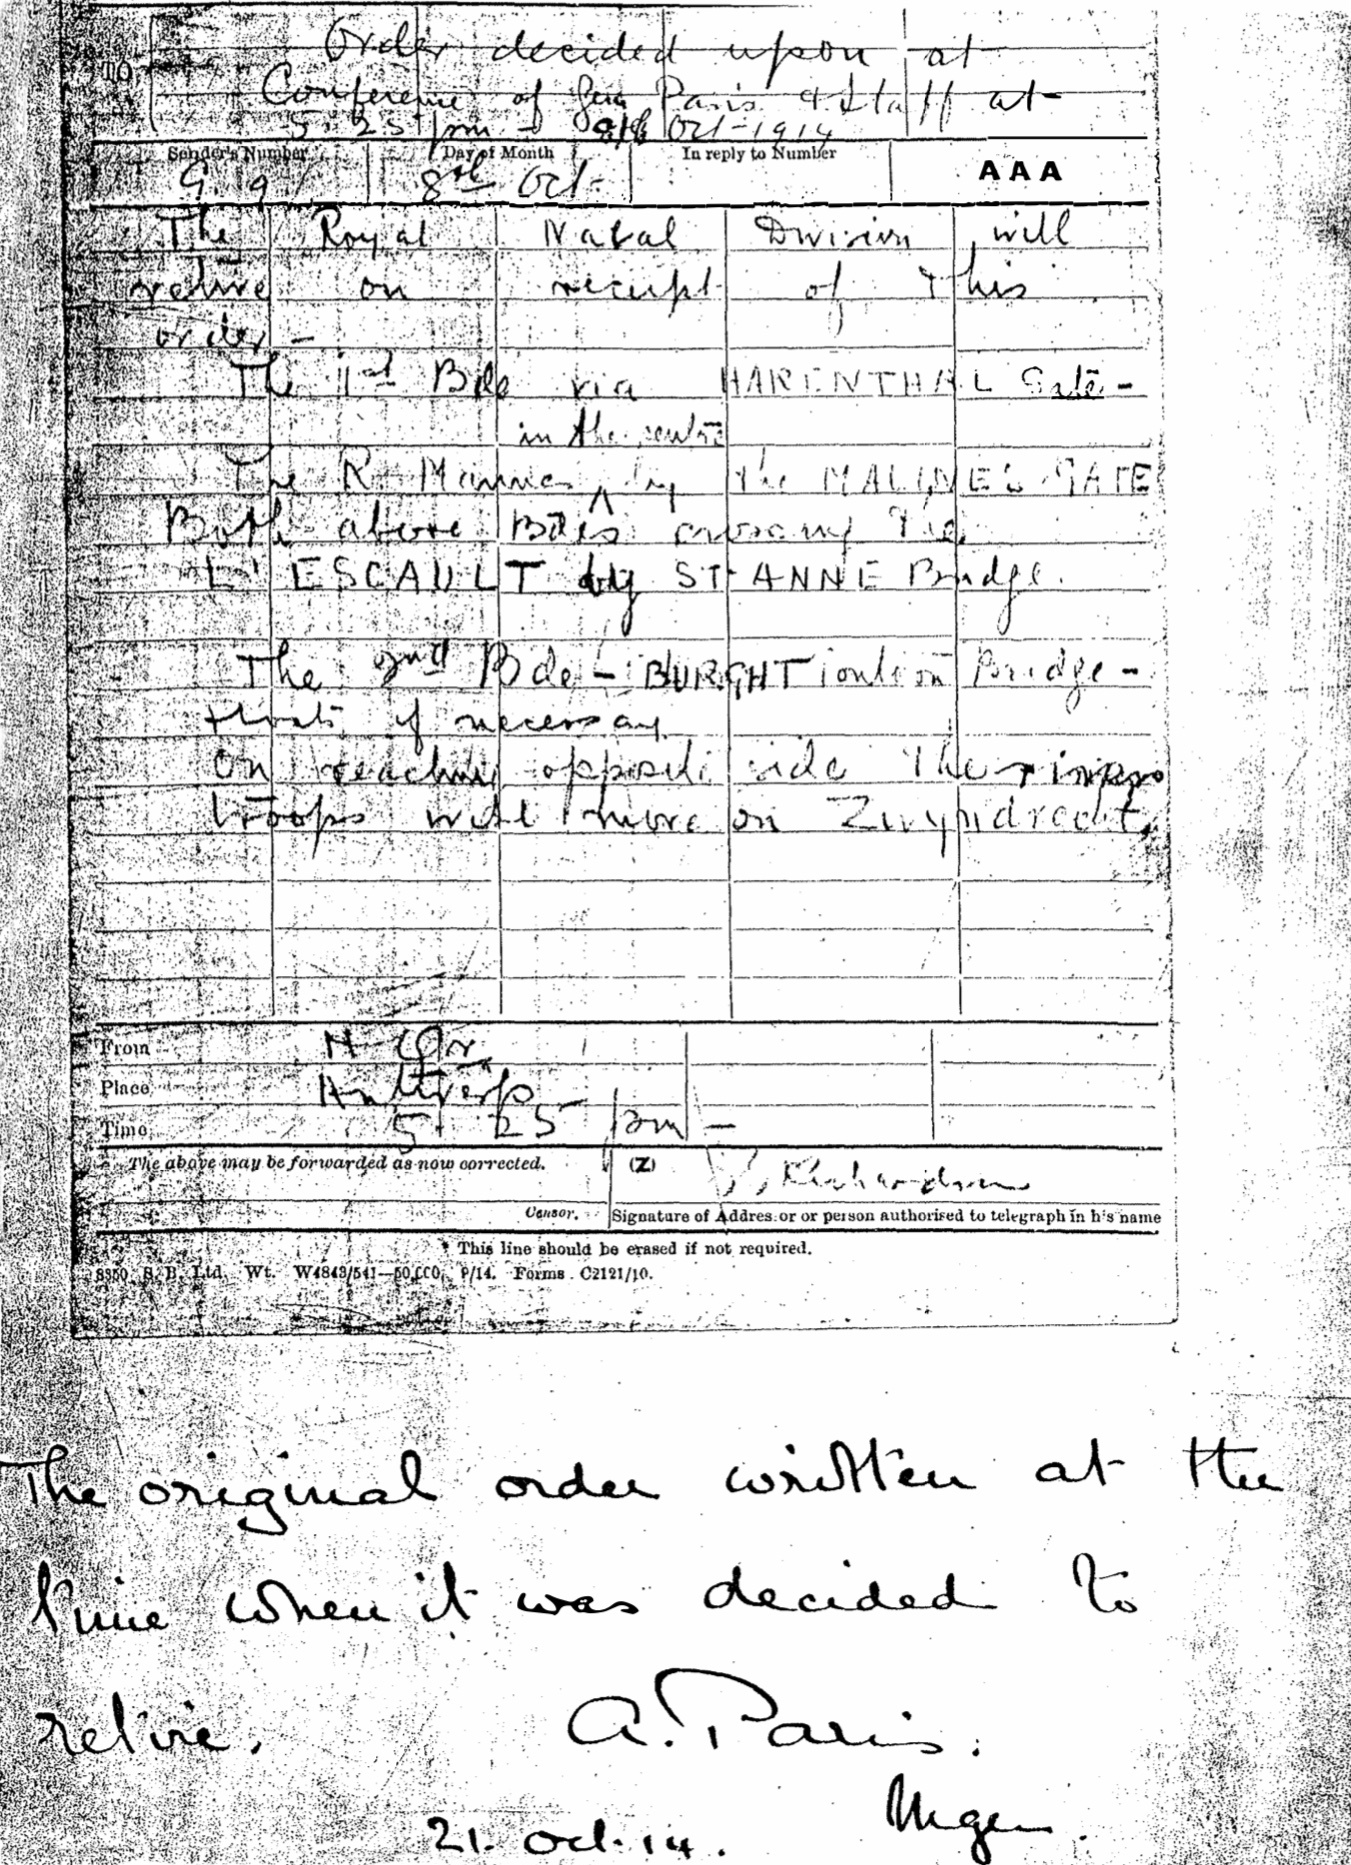 Order decided upon at
TO
Conference of Gen Paris & Staff at
5.25 pm - 8th Oct-1914
Sender's Number Day of Month In reply to Number AAA
G. 9 8th Oct-
The Royal Naval Division will
retire on receipt of this
order -
The 1st Bde via HARENTHAL Gate -
in the centre
The R Marines ^ by the MALINES GATE
Both above Bdes crossing the
L'ESCAULT by ST ANNE Bridge.
The 2nd Bde - BURGHT Bridge -
if necessary
On reaching opposite side the river
troops will move on Zwyndrecht.
From H-Qrs
Place Antwerp
Time 5. 25 pm -
The above may be forwarded as now corrected. (Z) Richardson
Censor. Signature of Addressor or person authorised to telegraph in his name
* This line should be erased if not required.
8350 S. B. Ltd. Wt. W4843/541—50,000. 9/14. Forms C2121/10.
The original order written at the
time when it was decided to
retire. A. Paris.
Mgen.
21. Oct. 14.